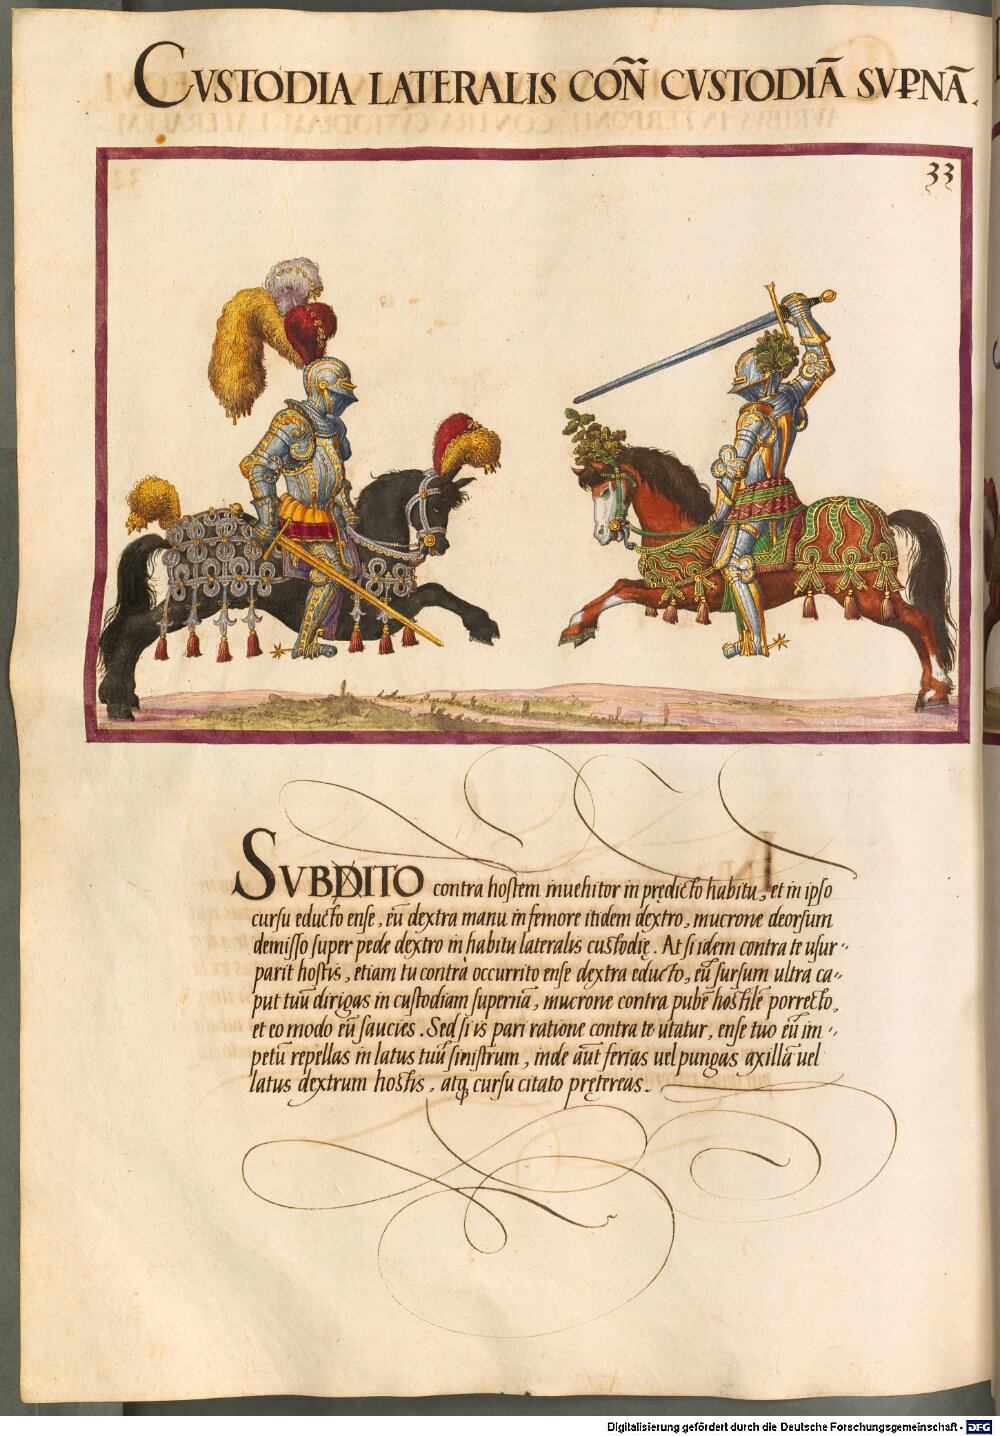 CVSTODIA LATERALIS COÑ CVSTODIĀ SVꝐNĀ.
33
SVBDITO contra hostem muehitor in prędicto habitu, et in ipso
cursu educto ense, eū dextra manu in femore itidem dextro, mucrone deorsum
demisso super pede dextro in habitu lateralis custodię. At si idem contra te usur-
parit hostis, etiam tu contrà occurrito ense dextra educto, eū sursum ultra ca-
put tuū dirigas in custodiam supernā, mucrone contra pubē hostilē porrecto,
et eo modo eū saucies. Sed si is pari ratione contra te utatur, ense tuo eū im-
petū repellas in latus tuū sinistrum, inde aūt ferias uel pungas axillā uel
latus dextrum hostis, atq̨ cursu citato prętereas.
Digitalisierung gefördert durch die Deutsche Forschungsgemeinschaft - DFG